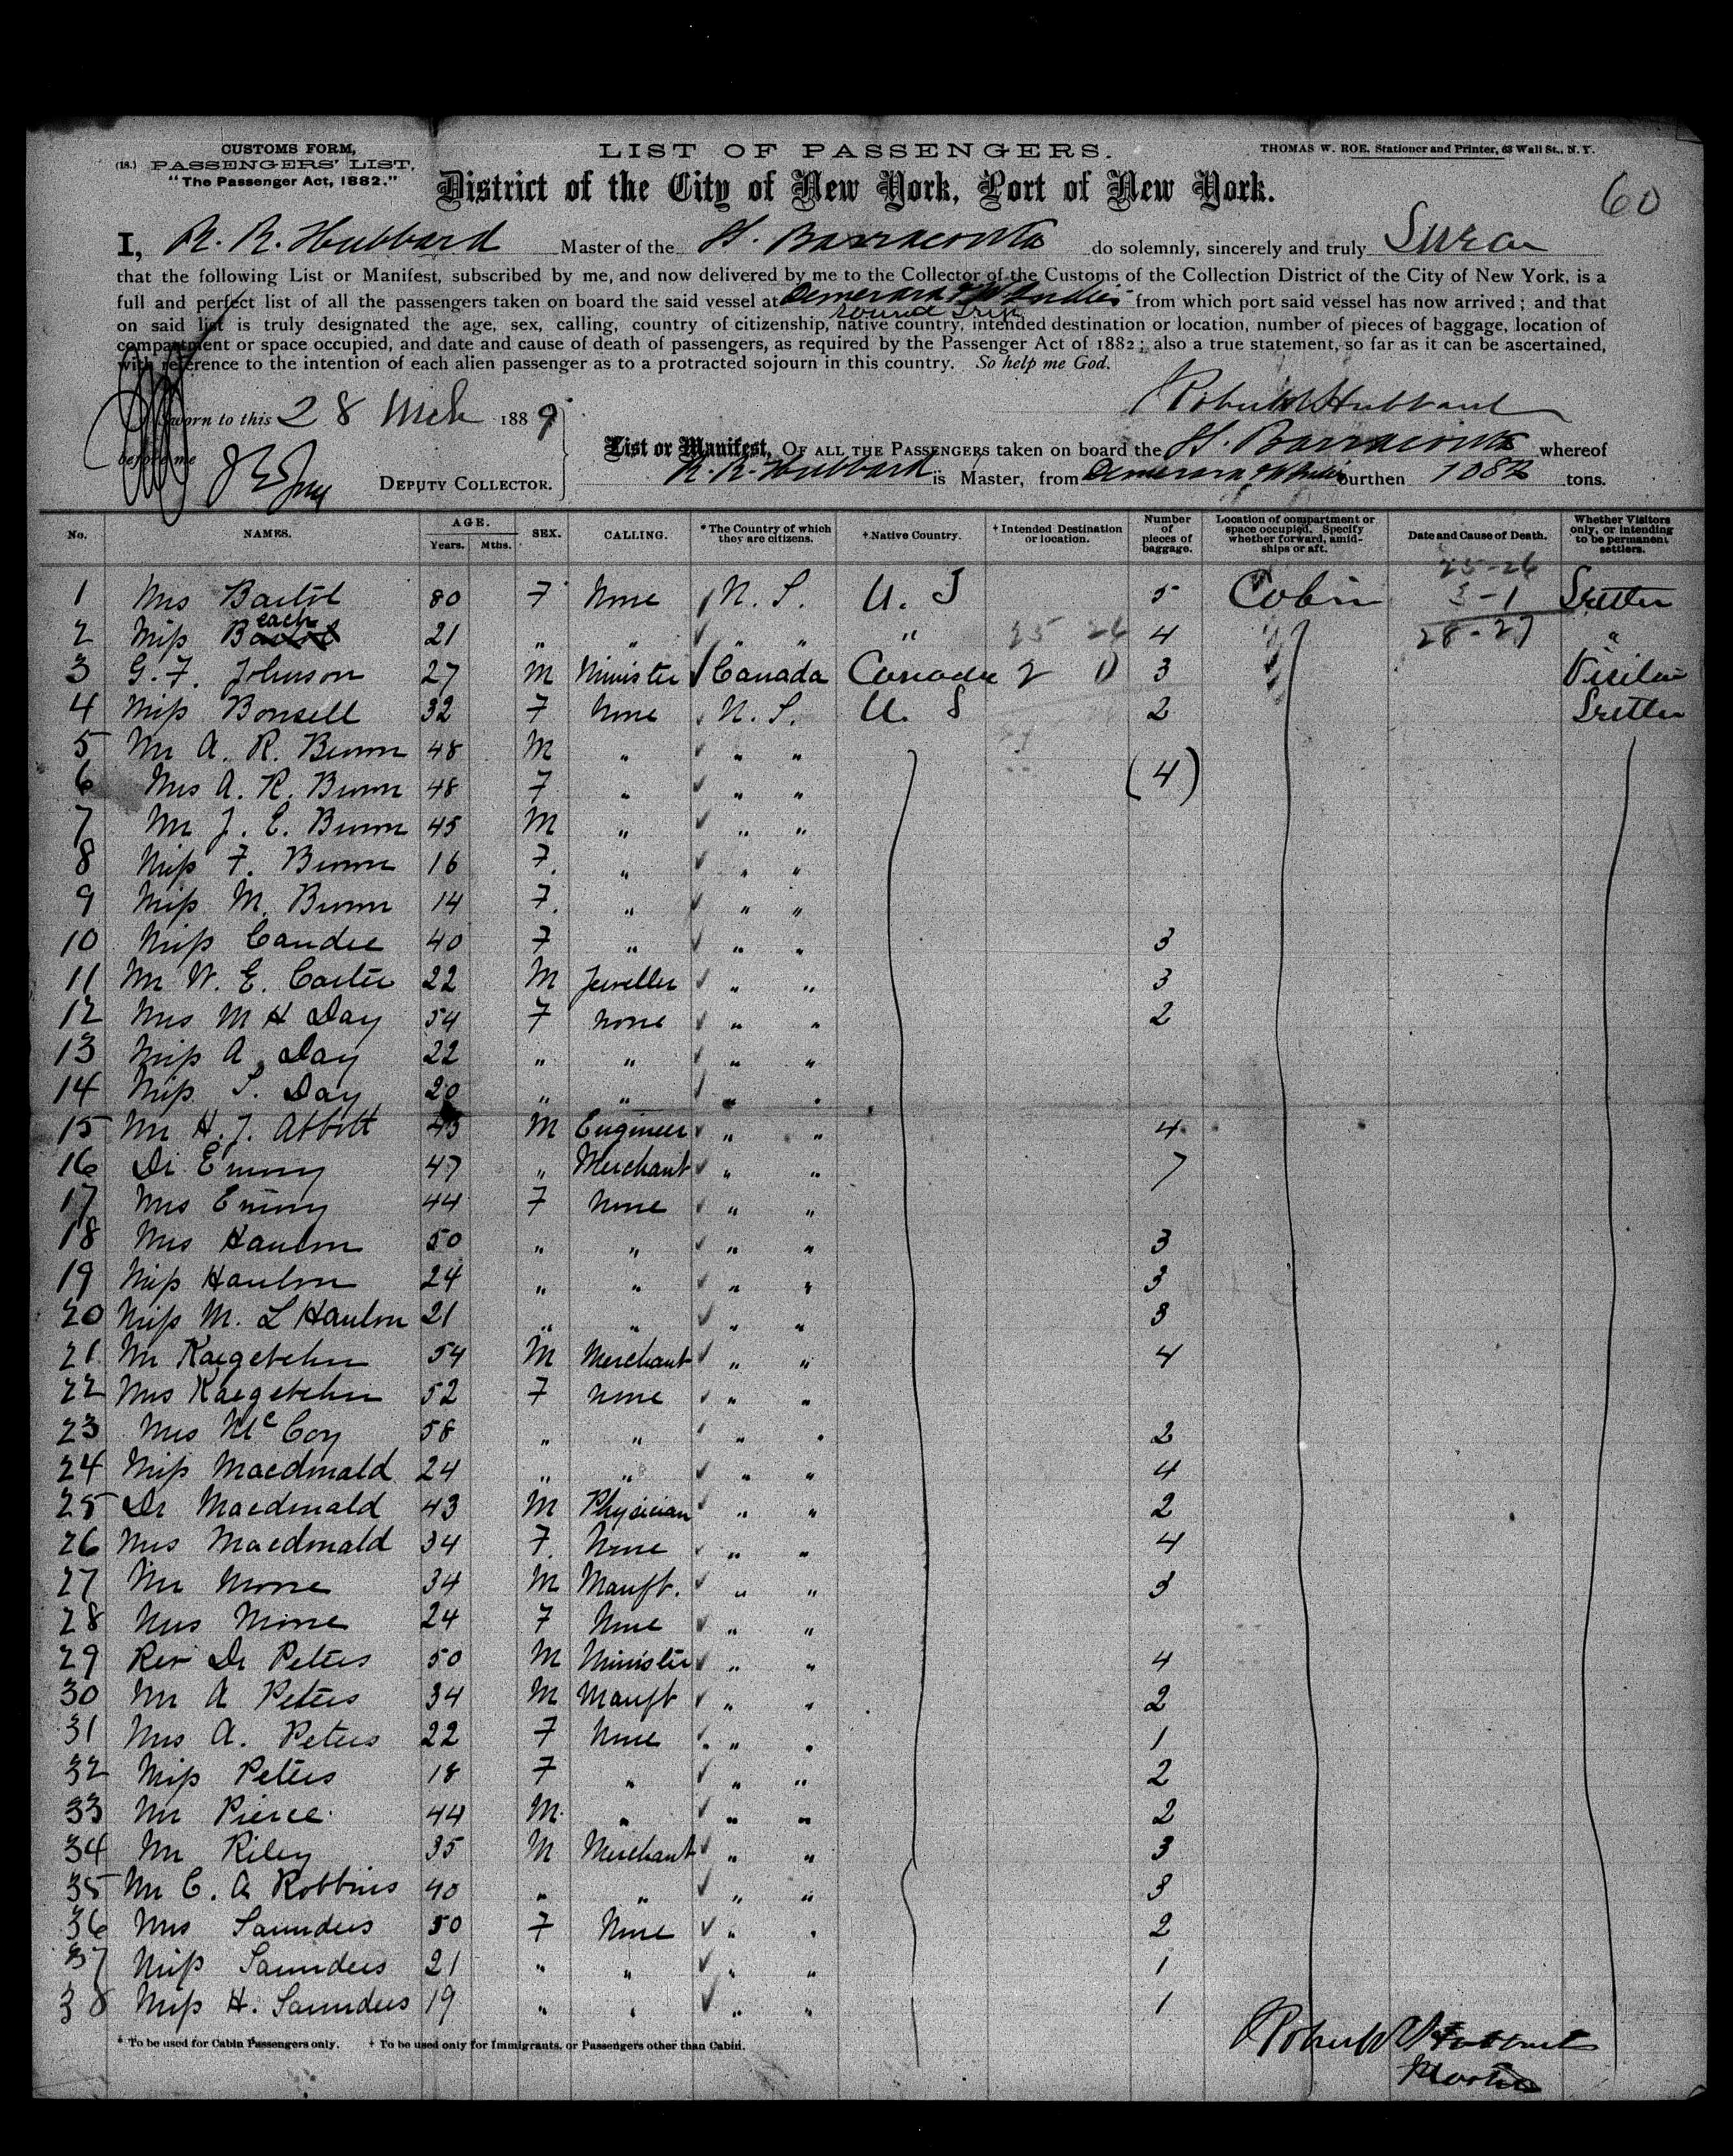 CUSTOMS FORM,
(18.) PASSENGERS' LIST,
"The Passenger Act, 1882."
LIST OF PASSENGERS.
THOMAS W. ROE, Stationer and Printer, 63 Wall St., N. Y.
District of the City of New York, Port of New York.
60
I, R. R. Hubbard Master of the St. Barracouta do solemnly, sincerely and truly Swear
that the following List or Manifest, subscribed by me, and now delivered by me to the Collector of the Customs of the Collection District of the City of New York, is a
full and perfect list of all the passengers taken on board the said vessel at Demerara & W Indies from which port said vessel has now arrived; and that
round Trip
on said list is truly designated the age, sex, calling, country of citizenship, native country, intended destination or location, number of pieces of baggage, location of
compartment or space occupied, and date and cause of death of passengers, as required by the Passenger Act of 1882; also a true statement, so far as it can be ascertained,
with reference to the intention of each alien passenger as to a protracted sojourn in this country. So help me God.
Robert R Hubbard
Sworn to this 28 Mch 1889
before me
DEPUTY COLLECTOR.
List or Manifest, OF ALL THE PASSENGERS taken on board the St. Barracouta whereof
R. R. Hubbard is Master, from Demerara & W Indies burthen 1082 tons.
No. NAMES. AGE. Years. Mths. SEX. CALLING. * The Country of which they are citizens. + Native Country. + Intended Destination or location. Number of pieces of baggage. Location of compartment or space occupied. Specify whether forward, amidships or aft. Date and Cause of Death. Whether Visitors only, or intending to be permanent settlers.
25-26
1 Mrs Bartol 80 F None U. S. U. S 5 Cabin 3-1 Settler
2 Miss Beach 21 " " " " " 25 26 4 28-27 "
3 G. F. Johnson 27 M Minister Canada Canada 2 1) 3 Visitor
4 Miss Bonsell 32 F None U. S. U. S 2 Settler
5 Mr A. R. Brown 48 M " " "
6 Mrs A. R. Brown 48 F " " " (4)
7 Mr J. E. Brown 45 M " " "
8 Miss F. Brown 16 F. " " "
9 Miss M. Brown 14 F. " " "
10 Miss Candee 40 F " " " 3
11 Mr W. E. Carter 22 M Jeweller " " 3
12 Mrs M H Day 54 F none " " 2
13 Miss A. Day 22 " " " "
14 Miss S. Day 20 " " " "
15 Mr H. J. Abbott 45 M Engineer " " 4
16 Dr Emory 47 " Merchant " " 7
17 Mrs Emory 44 F None " "
18 Mrs Hanlon 50 " " " " 3
19 Miss Hanlon 24 " " " " 3
20 Miss M. L Hanlon 21 " " " " 3
21 Mr Kaegebehn 54 M Merchant " " 4
22 Mrs Kaegebehn 52 F none " "
23 Mrs McCoy 58 " " " " 2
24 Miss Macdonald 24 " " " " 4
25 Dr Macdonald 43 M Physician " " 2
26 Mrs Macdonald 34 F. None " " 4
27 Mr Morse 34 M Manft. " " 3
28 Mrs Morse 24 F None " "
29 Rev Dr Peters 50 M Minister " " 4
30 Mr A Peters 34 M Manft " " 2
31 Mrs A. Peters 22 F None " " 1
32 Miss Peters 18 F " " " 2
33 Mr Pierce 44 M. " " " 2
34 Mr Riley 35 M Merchant " " 3
35 Mr C. A Robbins 40 " " " " 3
36 Mrs Saunders 50 F None " " 2
37 Miss Saunders 21 " " " " 1
38 Miss H. Saunders 19 " " " " 1
* To be used for Cabin Passengers only. + To be used only for Immigrants, or Passengers other than Cabin.
Robert R Hubbard
Master